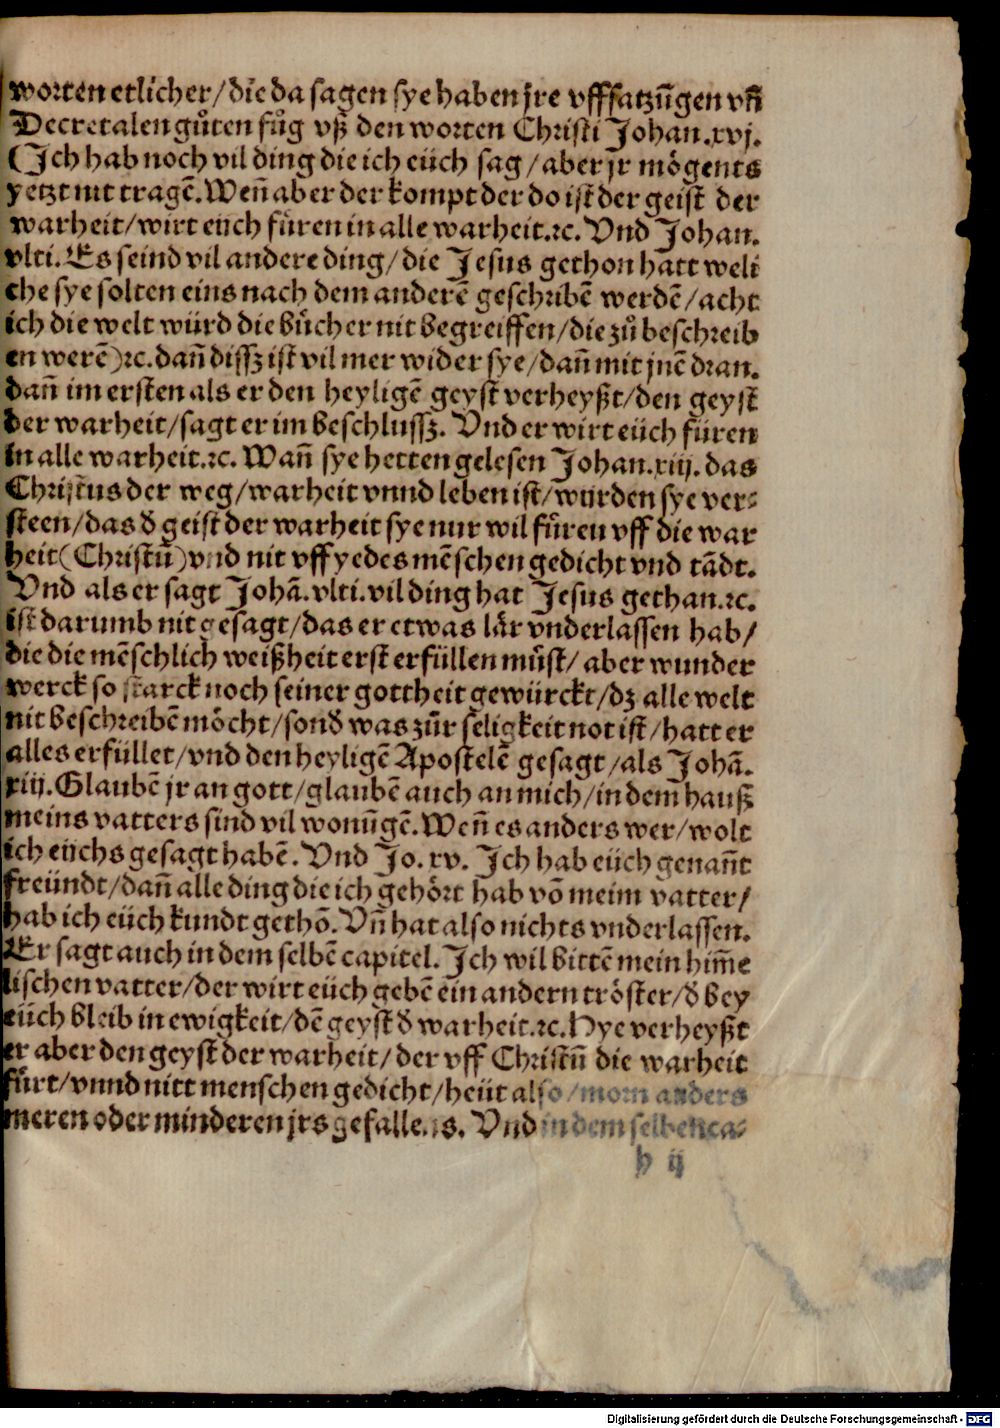 worten etlicher/die da sagen sye haben jre vffsatzūgen vñ
Decretalen gůten fůg vß den worten Christi Johan.xvj.
(Ich hab noch vil ding die ich eüch sag/aber jr mögents
yetzt nit tragē. Weñ aber der kompt der do ist der geist der
warheit/wirt eüch fůren in alle warheit.ꝛc. Vnd Johan.
vlti. Es seind vil andere ding/die Jesus gethon hatt weli
che sye solten eins nach dem anderē geschribē werdē/acht
ich die welt würd die bůcher nit begreiffen/die zů beschreib
en werē)ꝛc. dañ dissz ist vil mer wider sye/dañ mit jnē dran.
dañ im ersten als er den heyligē geyst verheyßt/den geyst
der warheit/sagt er im beschlussz. Vnd er wirt eüch füren
in alle warheit.ꝛc. Wañ sye hetten gelesen Johan.xiij. das
Christus der weg/warheit vnnd leben ist/würden sye ver⸗
steen/das ď geist der warheit sye nur wil fůren vff die war
heit(Christū)vnd nit vff yedes mēschen gedicht vnd tādt.
Vnd als er sagt Johā.vlti.vil ding hat Jesus gethan.ꝛc.
ist darumb nit gesagt/das er etwas lär vnderlassen hab/
die die mēschlich weißheit erst erfüllen můst/aber wunder
werck so starck noch seiner gottheit gewürckt/dz alle welt
nit beschreibē möcht/sonď was zůr seligkeit not ist/hatt er
alles erfüllet/vnd den heyligē Apostelē gesagt/als Johā.
xiij. Glaubē jr an gott/glaubē auch an mich/in dem hauß
meins vatters sind vil wonūgē. Weñ es anders wer/wolt
ich eüchs gesagt habē. Vnd Jo. xv. Ich hab eüch genañt
freündt/dañ alle ding die ich gehört hab vō meim vatter/
hab ich eüch kundt gethō. Vñ hat also nichts vnderlassen.
Er sagt auch in dem selbē capitel. Ich wil bittē mein him̄e
lischen vatter/der wirt eüch gebē ein andern tröster/ď bey
eüch bleib in ewigkeit/dē geyst ď warheit.ꝛc. Hye verheyßt
er aber den geyst der warheit/der vff Christū die warheit
fürt/vnnd nitt menschen gedicht/heüt also/morn anders
meren oder minderen jrs gefallens. Vnd in dem selben ca⸗
h ij
Digitalisierung gefördert durch die Deutsche Forschungsgemeinschaft - DFG